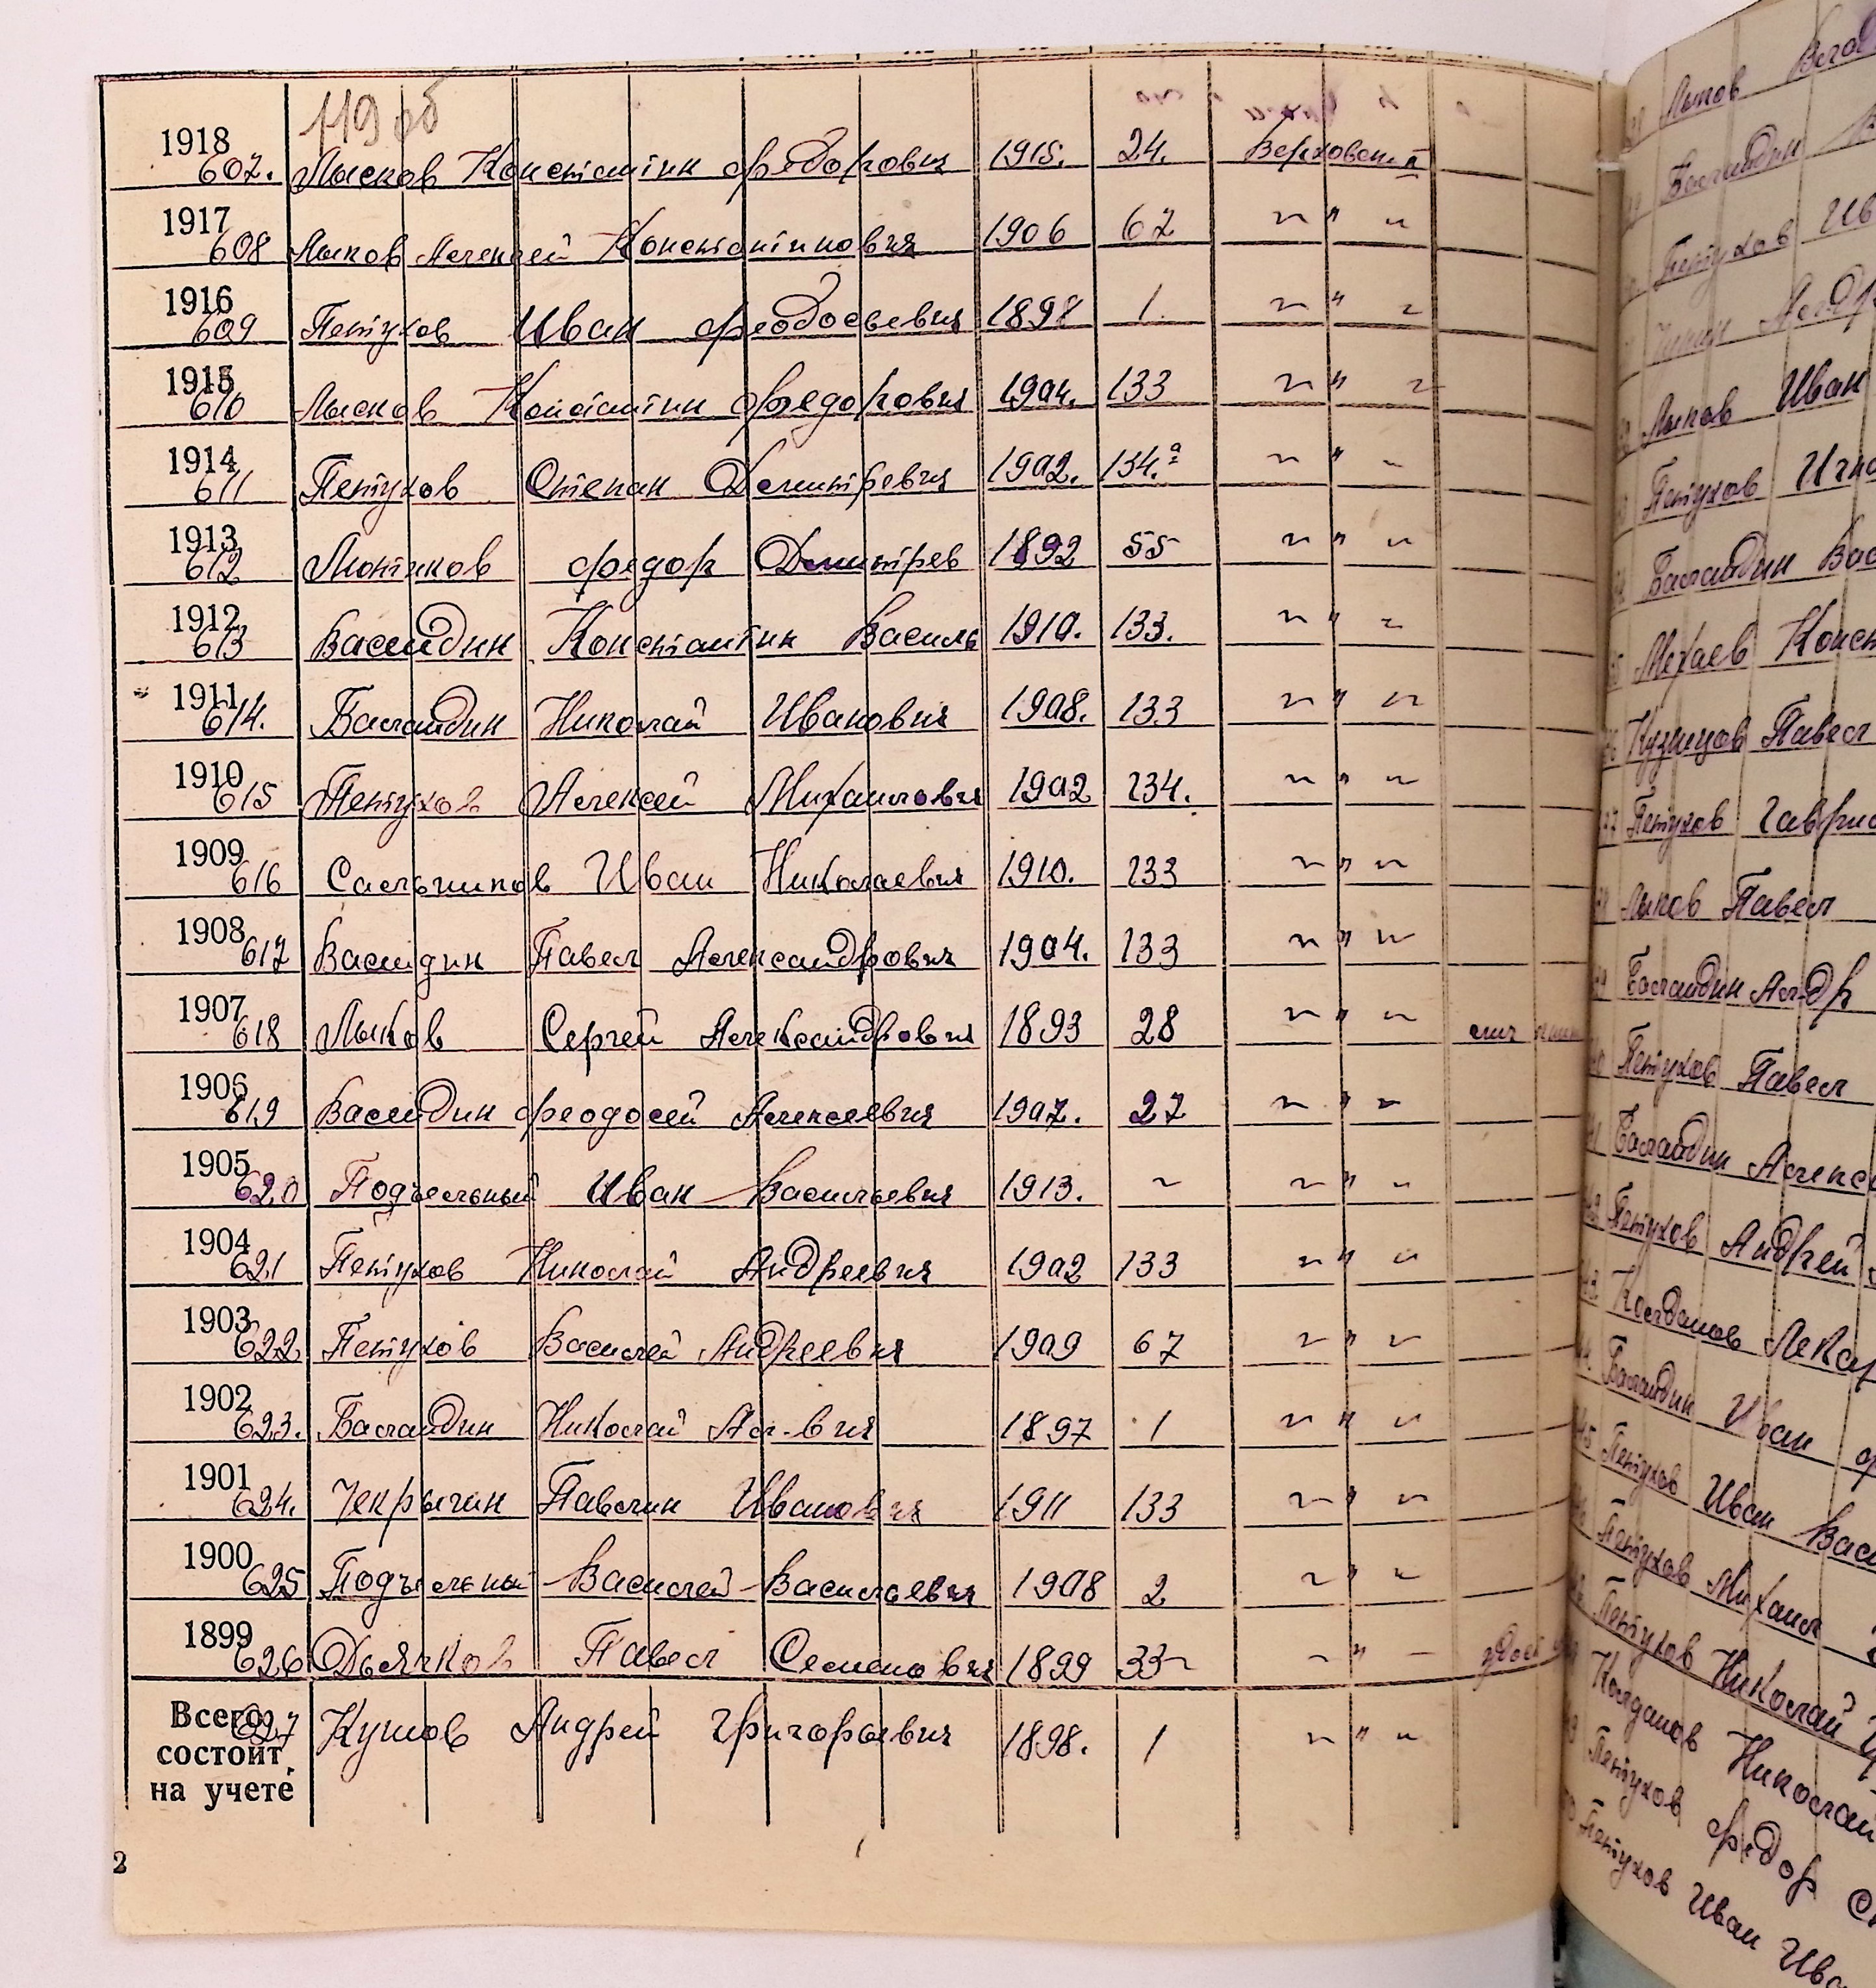 119 об
1918 607. Лысков Константин Федорович 1915. 24. Верховский
1917 608 Лыков Алексей Константинович 1906 67 ~ " ~
1916 609 Петухов Иван Феодосьевич 1898 1. ~ " ~
1915 610 Лысков Константин Федорович 1904. 133 ~ " ~
1914 611 Петухов Степан Дмитревич 1902. 134.а ~ " ~
1913 612 Лютиков Федор Дмитрев 1892 55 ~ " ~
1912 613 Васендин Константин Василь 1910. 133. ~ " ~
1911 614. Баландин Николай Иванович 1908. 133 ~ " ~
1910 615 Петухов Алексей Михайлович 1902 134. ~ " ~
1909 616 Сальников Иван Николаевич 1910. 133 ~ " ~
1908 617 Васендин Павел Александрович 1904. 133 ~ " ~
1907 618 Лыков Сергей Александрович 1893 28 ~ " ~
1906 619 Васендин Феодосей Алексеевич 1907. 27 ~ " ~
1905 620 Подъельный Иван Васильевич 1913. ~ ~ " ~
1904 621 Петухов Николай Андреевич 1902 133 ~ " ~
1903 622 Петухов Василей Андреевич 1909 67 ~ " ~
1902 623. Баландин Николай Ал-вич 1897 1 ~ " ~
1901 624. Чекрыгин Павлин Иванович 1911 133 ~ " ~
1900 625 Подъельный Василей Васильевич 1908 2 ~ " ~
1899 626 Дьячков Павел Семенович 1899 33 ~ ~ " ~
Всего состоит на учете 627 Кушов Андрей Григорьевич 1898. 1 ~ " ~
2
Лыков
Баландин
Петухов Ив
Лыков Иван
Петухов Игна
Баландин Вас
Михаев Конст
Кузнецов Павел
37 Петухов Гаврил
Лыков Павел
Баландин Ал-др
40 Петухов Павел
Баландин Алекс
Петухов Андрей
Колданов
Баландин Иван
45 Петухов Иван Васи
Петухов Михаил
Петухов Николай
Колданов Николай
Петухов Федор
Петухов Иван Ива